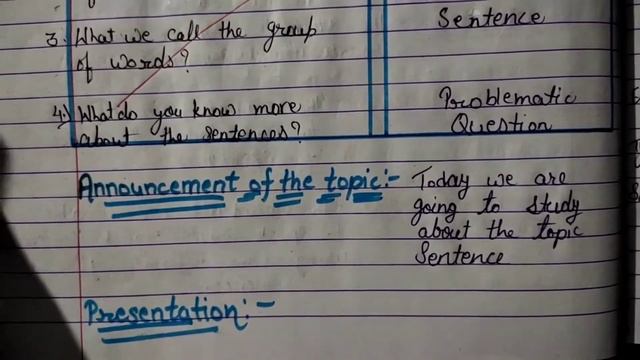 3. What we call the group
of words?
Sentence
4.) What do you know more
about the sentences?
Problematic
Question
Announcement of the topic:-
Today we are
going to study
about the topic
Sentence
Presentation:-